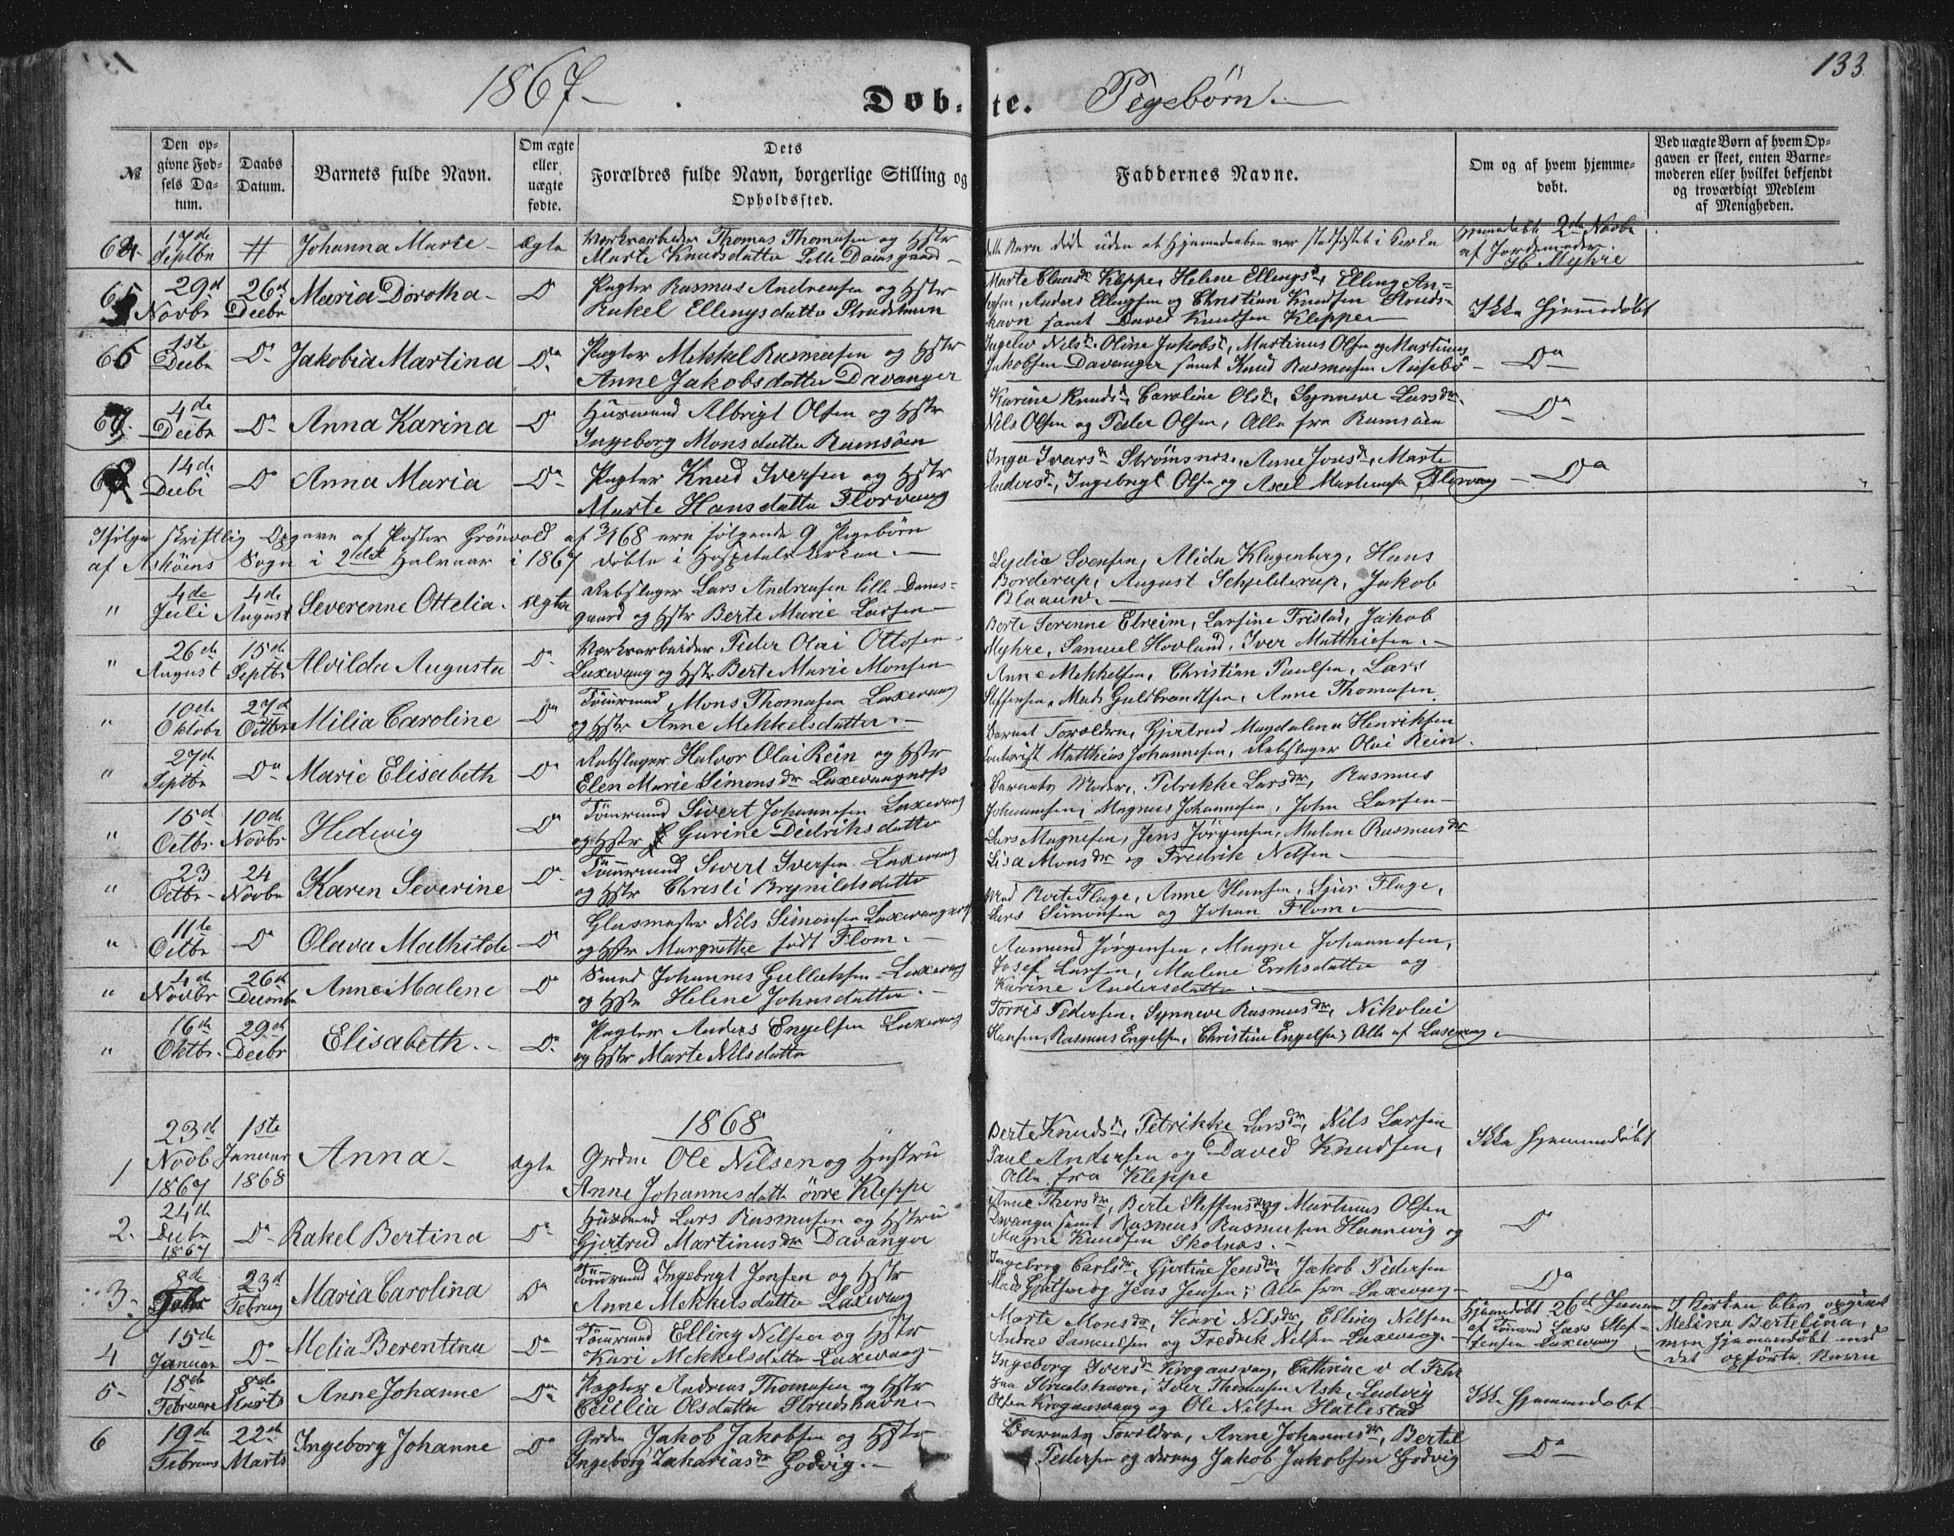 133
1867 Døbte. Pigebørn.
№
Den opgivne Fødsels Datum.
Daabs Datum.
Barnets fulde Navn.
Om ægte eller uægte fødte.
Dets Forældres fulde Navn, borgerlige Stilling og Opholdssted.
Faddernes Navne.
Om og af hvem hjemmedøbt.
Ved uægte Børn af hvem Opgaven er skeet, enten Barnemoderen eller hvilket bekjendt og troværdigt Medlem af Menigheden.
64. 17de Septbr # Johanna Marie ægte Værkarbeider Thomas Thomasen og Hstr
Marte Knudsdatter Lille Damsgaard
Barn døde uden at Hjemmedaaben var stadfæstet i Kirke
Hjemmedøbt 2de Novbr
af Jordemoder
Myhre
65 29d Novbr 26d Decbr Maria Dorothea Do Pagter Rasmus Andreasen og Hstr
Rakel Ellingsdatter Strudshavn
Marte Clausdr Kleppe, Helene Ellingsdr, Elling An-
dersen, Anders Ellingsen og Christian Knudsen Struds-
havn samt David Knudsen Kleppe
Ikke hjemmedøbt
66 1ste Decbr Do Jakobia Martina Do Pagter Mekkel Rasmusen og Hstr
Anne Jakobsdatter Davanger
Ingelev Nilsdr, Oline Jakobsdr, Martinus Olsen og Martinus
Jakobsen Davanger samt Knud Rasmusen
Do
67. 4de Decbr Do Anna Karina Do Husmand Albrigt Olsen og Hstr
Ingeborg Monsdatter Ramsöen
Karine Knudsdr, Caroline Olsdr, Synneve Larsdr
Nils Olsen og Peder Olsen, Alle fra Ramsöen
Do
68 14de Decbr Do Anna Maria Do Pagter Knud Iversen og Hstr
Marte Hansdatter Florvaag
Inga Ivarsdr Strömsnes, Anne Jonsdr, Marte
Andersdr, Ingebrigt Olsen og Axel Martinusen Florvaag
Do
Ifölge skriftlig Opgave af Pastor Grönvold af 3/1 68 ere følgende 9 Pigebørn
af Askøens Sogn i 2det Halvaar i 1867 døbte i Hospitalskirken.
" 4de Juli 4de August Severenne Ottelia. ægte Rebslager Lars Andreasen Lille Dams-
gaard og Hstr Berte Marie Larsen
Lydia Svensen, Alida Klagenberg, Hans
Borderup, August Schjelderup, Jakob
Blaauw.
" 26de August 15de Septbr Alvilda Augusta Do Værkarbeider Peder Olai Ottosen
Laxevaag og Hstr Berte Marie Monsen
Berte Serenne Elreim, Larsine Fristad, Jakob
Myhre, Samuel Hovland, Iver Matthiesen.
" 10de Oktobr 27d Octbr Milia Caroline Do Tömrmand Mons Thomasen Laxevaag
og Hstr Anne Mekkelsdatter
Anne Mekkelsen, Christian Paulsen, Lars
Steffensen, Mads Guldbrandsen, Anne Thomasen.
" 27de Septbr Do Marie Elisabeth Do Rebslager Halvor Olai Rein og Hstr
Elen Marie Simonsdr Laxevaagnæss
Barnets Forældre, Gjertrud Magdalena Henriksen
Matthias Johannesen, Rebslager Olai Rein.
" 15d Octbr. 10de Novbr Hedevig Do Tömrmand Sivert Johannesen Laxevaag
og Hstr Gurine Diedriksdatter
Barnets Moder, Petrikke Larsdr, Rasmus
Johannesen, Magnus Johannesen, John Larsen
" 23 Octbr 24 Novbr Karen Severine Do Tömmrmand Sivert Iversen Laxevaag
og Hstr Christi Brynildsdatter
Lars Magnesen, Jens Jörgensen, Malene Rasmusdr
Lisa Monsdr og Fredrik Nelsen
" 11te Octbr Do Olava Mathilde Do Glasmester Nils Simonsen Laxevaagnæss
og Hstr Margrethe født Flom.
Berte Flage, Anne Hansen, Sjur Flage,
Lars Simonsen og Johan Flom.
" 4de Novbr 26de Decembr Anne Malene Do Smed Johannes Gullaksen Laxevaag
og Hstr Helene Johnsdatter.
Aamund Jörgensen, Magne Johannesen,
Josef Larsen, Malene Eriksdatter og
Karine Andersdatter.
" 16de Oktbr. 29de Decbr Elisabeth. Do Pagter Anders Engelsen Laxevaag
og Hstr Marte Nilsdatter
Torris Pedersen, Synneve Rasmusdr, Nikolai
Hansen, Rasmus Engelsen, Christine Engelsen; Alle af Laxevaag.
1868
1 23d Novb 1867 1ste Januar 1868 Anna ægte Grdm Ole Nilsen og Hustru
Anne Johannesdatter övre Kleppe
Berte Knudsdr, Petrikke Larsdr, Nils Larsen
Paul Andersen og David Knudsen,
Alle fra Kleppe
Ikke hjemmedøbt
2. 24de Decbr 1867 Do Rakel Bertina Do Husmand Lars Rasmusen og Hstru
Gjertrud Martinusdr Davanger
Anne Thersdr, Berte Steffensdr og Martinus Olsen
Davanger samt Rasmus Rasmusen Hannevig og
Magne Knudsen Skolnæs.
Do
3. 8de Febr 23d Februar Maria Carolina Do Tömrmand Ingebrigt Jensen og Hstr
Anne Mekkelsdatter Laxevaag
Ingeborg Carlsdr, Gjertine Jensdr, Jakob Pedersen
Mads og Jens Jensen; Alle fra Laxevaag
Do
4 15de Januar Do Melia Berentina Do Tömrmand Elling Nelsen og Hstr
Kari Mekkelsdatter Laxevaag
Marte Monsdr, Kari Nilsdr, Elling Nelsen
Andres Samuelsen og Fredrik Nelsen Laxevaag.
Hjemmedøbt 26de Januar
af Tömrmd Lars Stef-
fensen Laxevaag
I Kirken blev opgivet
Melina Bertelina,
men hjemmedøbt med
det opførte Navn
5 18de Februar 8de Marts Anne Johanne Do Pagter Andreas Thomasen og Hstr
Cecilia Olsdatter Strudshavn
Ingeborg Iversdr Krogaasvaag, Cathrine v d Fehr
Strudshavn, Iver Thomasen Ask, Ludvig
Olsen Krogaasvaag og Ole Nilsen Hatlestad
Ikke hjemmedøbt
6 19de Februar 22de Marts Ingeborg Johanne Do Grdm Jakob Jakobsen og Hstr
Ingeborg Zakariasdr Godvig.
Barnets Forældre, Anne Johannesdr, Bertel
Pedersen og dreng Jakob Jakobsen Godvig
Do